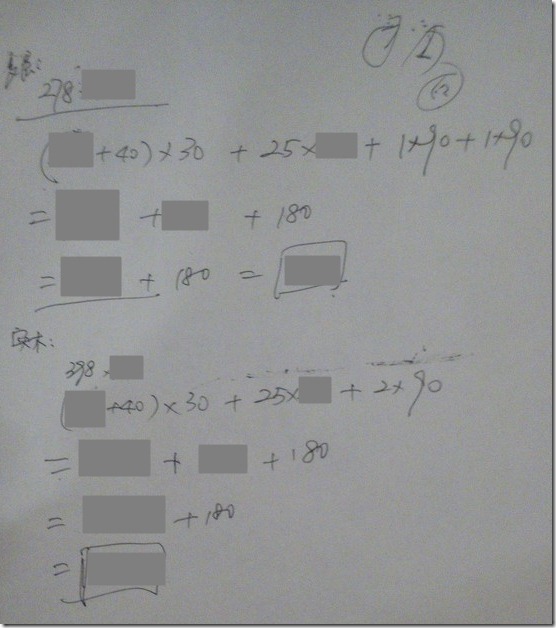 278
( +40)×30 + 25× + 1×90 + 1×90
= + + 180
= + 180 =
实木:
398 ×
( +40)×30 + 25× + 2×90
= + + 180
= +180
=